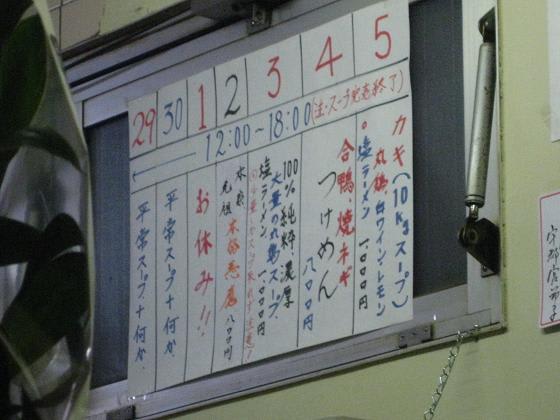 29 30 1 2 3 4 5
12:00~18:00(注・スープ完売終了)
カキ(10kgスープ)
丸鶏、白ワイン、レモン
塩ラーメン 一〇〇〇円
合鴨、焼ネギ
つけめん
八〇〇円
100%純粋濃厚
大量の丸鶏スープ
塩ラーメン 一〇〇〇円
本家
元祖 八〇〇円
お休み!!
平常スープ+何か
平常スープ+何か